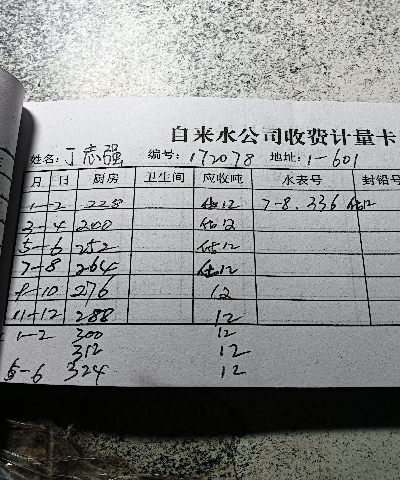 自来水公司收费计量卡
姓名：丁志强 编号：172078 地址：1-601
月 日 厨房 卫生间 应收吨 水表号 封铅号
1-2 228 估12 7-8.336 估12
3-4 200 估12
5-6 252 估12
7-8 264 估12
9-10 276 12
11-12 288 12
1-2 300 12
312 12
5-6 324 12